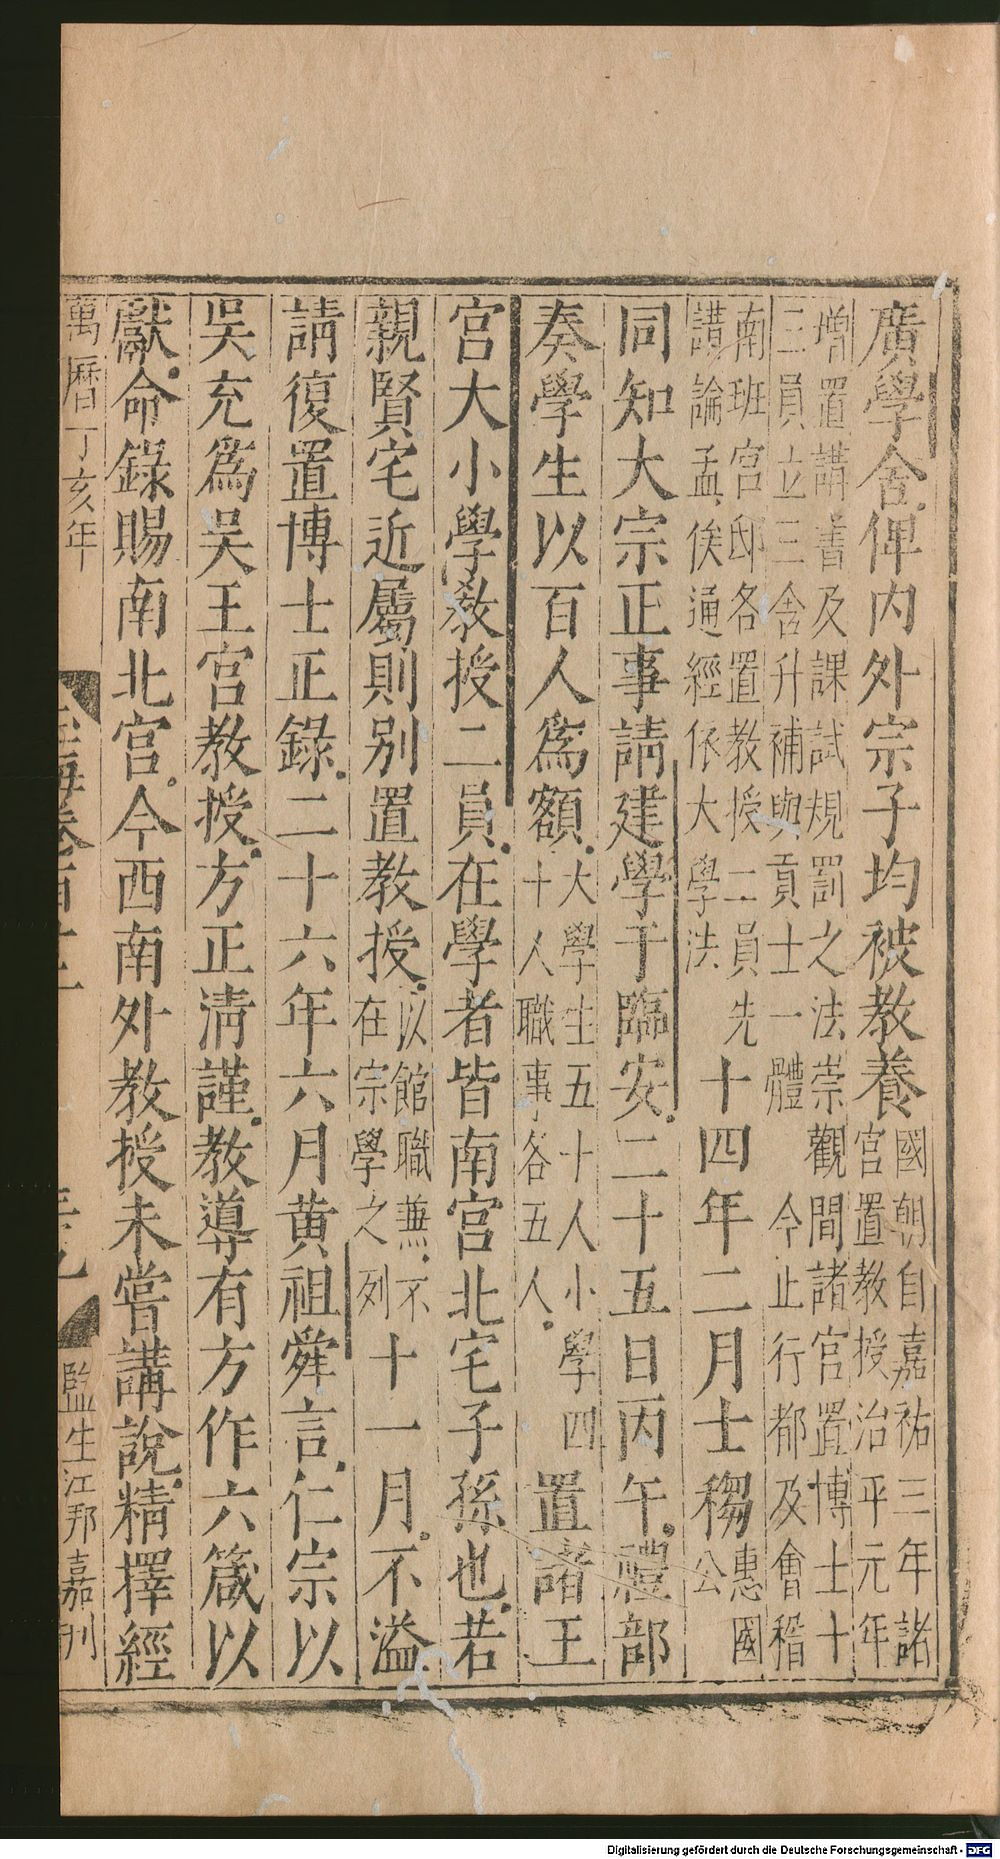 廣學舍俾内外宗子均被教養國朝自嘉祐三年諸宮置教授治平元年
增置講書及課試規罰之法崇觀間諸宮置博士十三員立三舍升補與貢士一體今止行都及會稽
南班宮邸各置教授二員先講論孟俟通經依大學法十四年二月士𥠇惠國公
同知大宗正事請建學于臨安二十五日丙午禮部
奏學生以百人為額大學生五十人小學四十人職事各五人置諸王
宮大小學教授二員在學者皆南宮北宅子孫也若
親賢宅近屬則別置教授以館職兼不在宗學之列十一月不溢
請復置博士正錄二十六年六月黄祖舜言仁宗以
吳充為吳王宮教授方正清謹教導有方作六箴以
獻命錄賜南北宮今西南外教授未嘗講說精擇經
萬曆丁亥年
監生江邦嘉刊
Digitalisierung gefördert durch die Deutsche Forschungsgemeinschaft - DFG